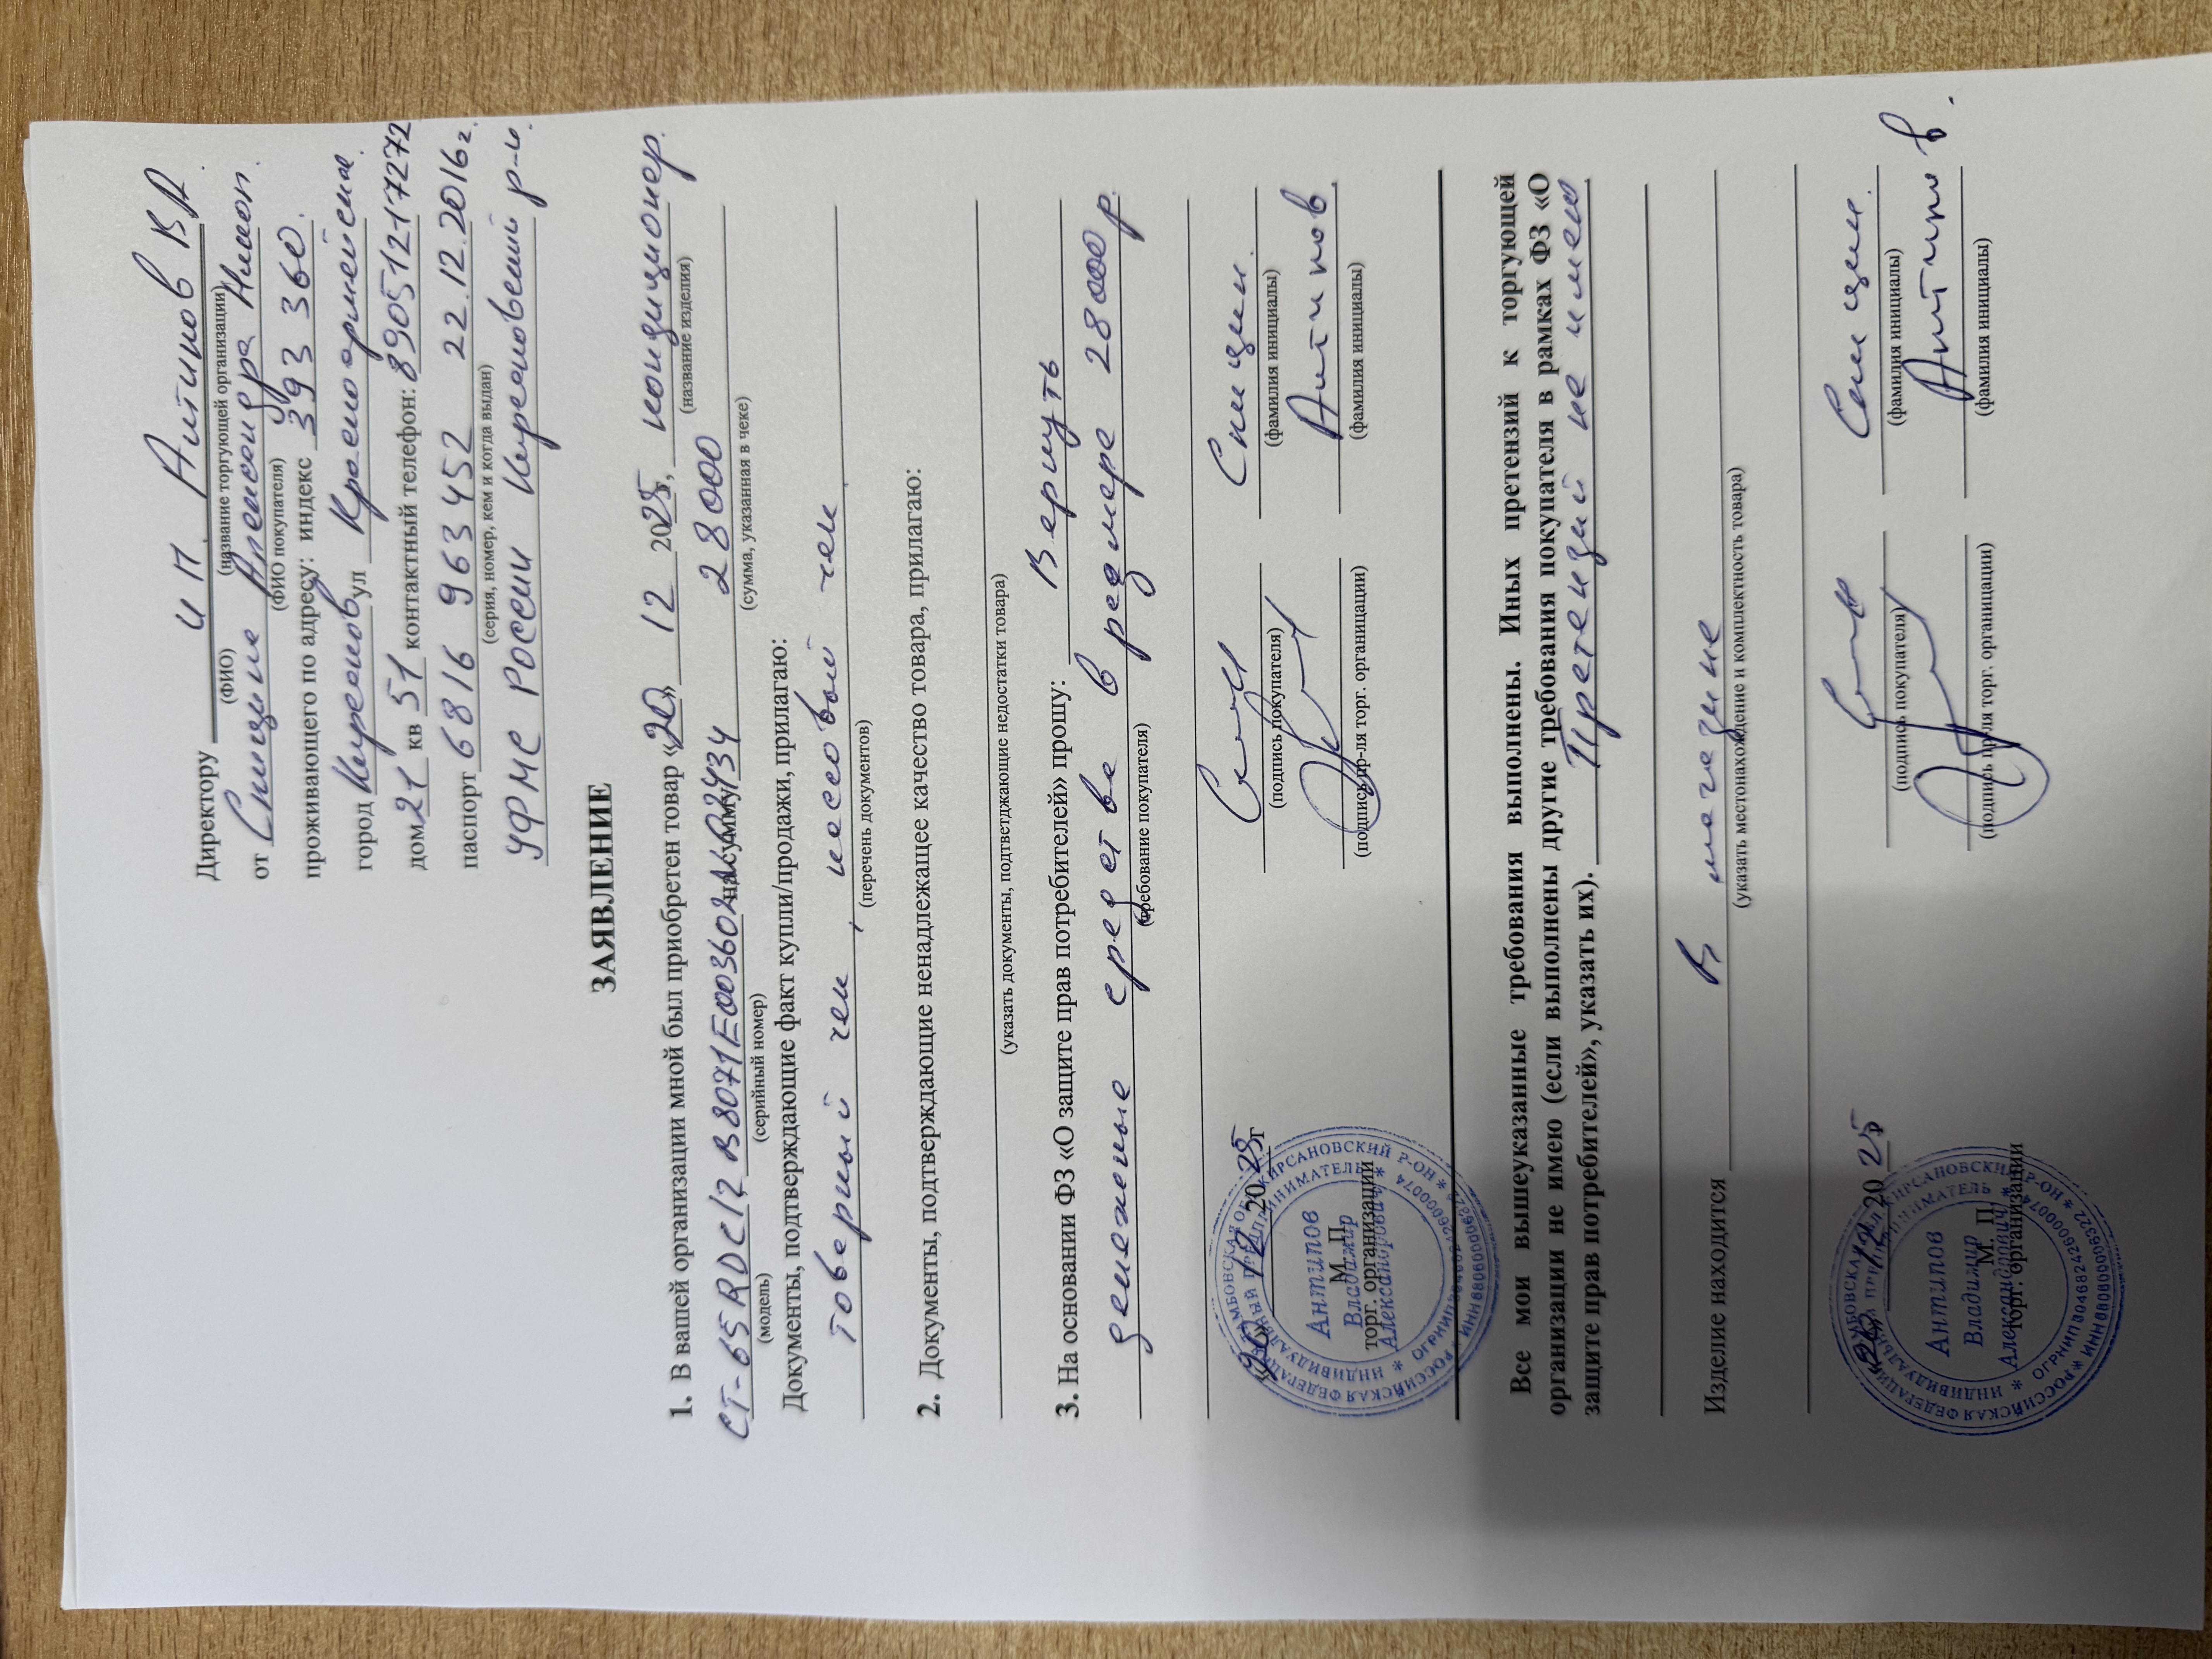 Директору И П. Антипов ВА
(ФИО) (название торгующей организации)
от Спицина Александра Никол.
(ФИО покупателя)
проживающего по адресу: индекс 393 360.
город Кирсанов ул Красноармейская.
дом 21 кв 51 контактный телефон: 89051217272
паспорт 6816 963452 22.12.2016г.
(серия, номер, кем и когда выдан)
УФМС РОССИИ Кирсановский р-н.
ЗАЯВЛЕНИЕ
1. В вашей организации мной был приобретен товар «20» 12 2025г, кондиционер.
(название изделия)
CT-65RDC12 B8071E003602 на сумму 28000
(модель) (серийный номер) (сумма, указанная в чеке)
Документы, подтверждающие факт купли/продажи, прилагаю:
товарный чек, кассовый чек.
(перечень документов)
2. Документы, подтверждающие ненадлежащее качество товара, прилагаю:
(указать документы, подтветджающие недостатки товара)
3. На основании ФЗ «О защите прав потребителей» прошу: Вернуть
денежные средства в размере 28000 р
(требование покупателя)
«20» 12 2025г Спицин.
(подпись покупателя) (фамилия инициалы)
М. П.
торг. организации
Антипов
(подпись пр-ля торг. органицации) (фамилия инициалы)
РОССИЙСКАЯ ФЕДЕРАЦИЯ ТАМБОВСКАЯ ОБЛ. КИРСАНОВСКИЙ Р-ОН
ИНДИВИДУАЛЬНЫЙ ПРЕДПРИНИМАТЕЛЬ
Антипов
Владимир
Александрович
Все мои вышеуказанные требования выполнены. Иных претензий к торгующей
организации не имею (если выполнены другие требования покупателя в рамках ФЗ «О
защите прав потребителей», указать их). Претензий не имею.
Изделие находится В магазине
(указать местонахождение и комплектность товара)
«20» 12 2025 Спицин.
(подпись покупателя) (фамилия инициалы)
М. П.
торг. организании
Антипов В.
(подпись пр-ля торг. органицации) (фамилия инициалы)
РОССИЙСКАЯ ФЕДЕРАЦИЯ ТАМБОВСКАЯ КИРСАНОВСКИЙ Р-ОН
ИНДИВИДУАЛЬНЫЙ ПРЕДПРИНИМАТЕЛЬ
Антипов
Владимир
Александрович